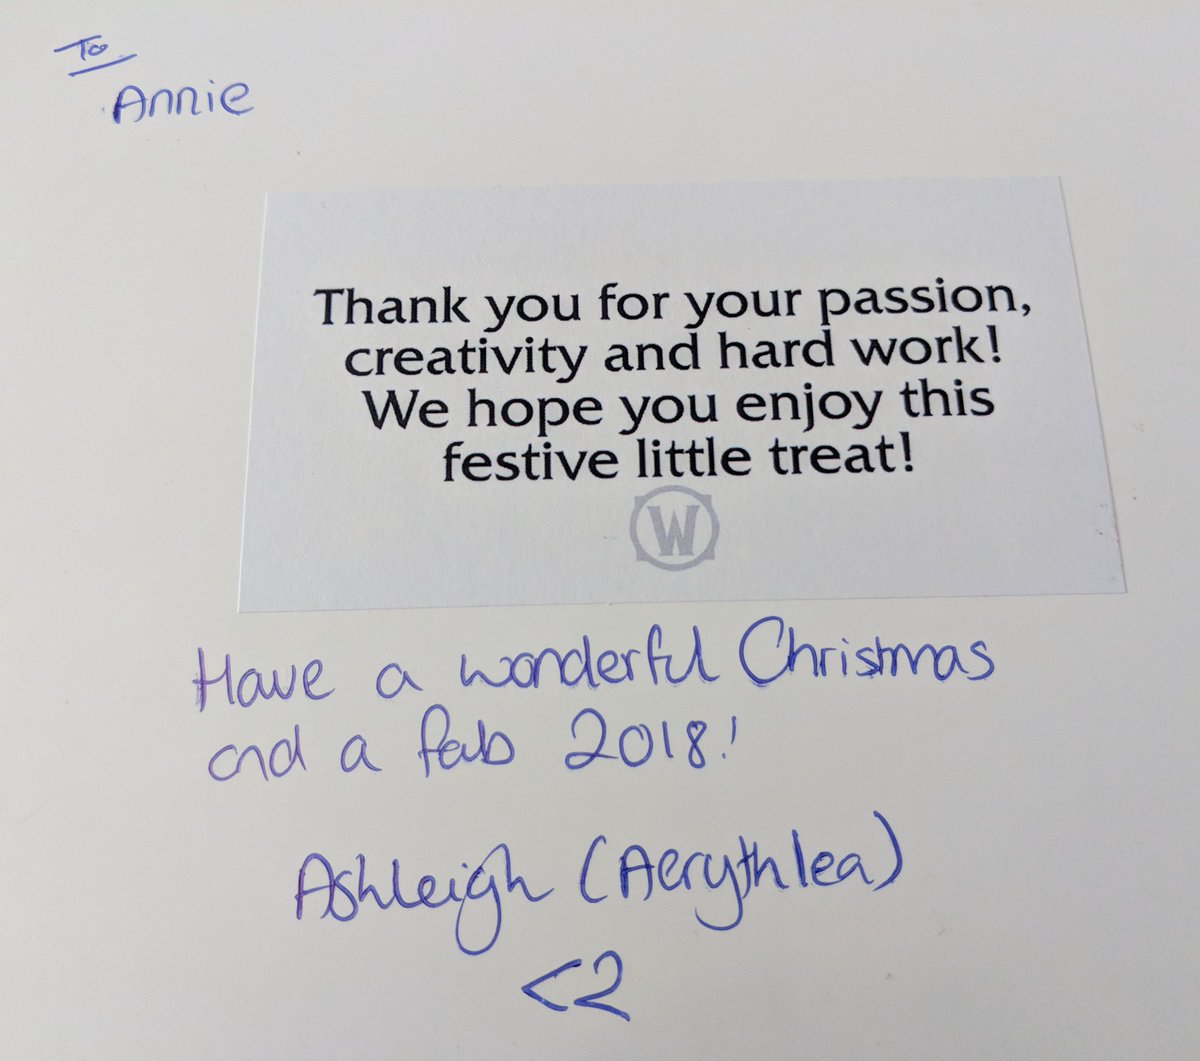 To
Annie
Thank you for your passion,
creativity and hard work!
We hope you enjoy this
festive little treat!
W
Have a wonderful Christmas
and a fab 2018!
Ashleigh (Aerythlea)
<2